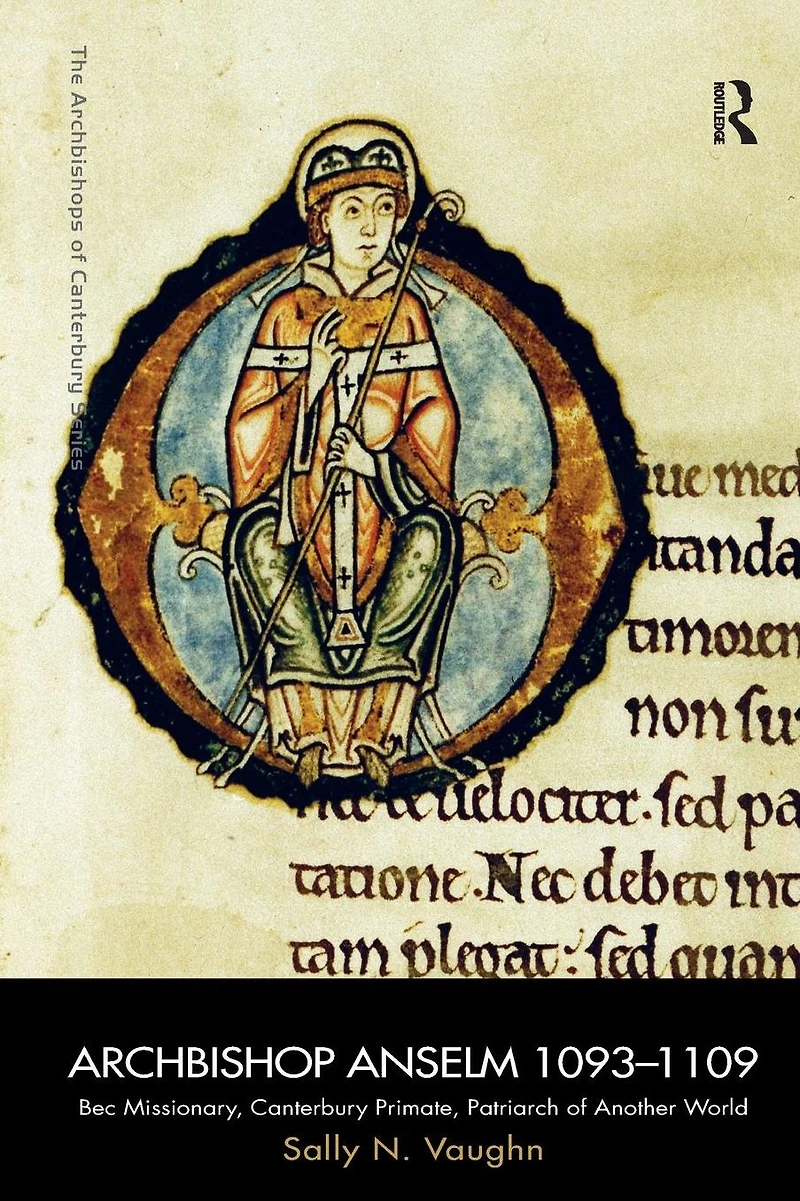 The Archbishops of Canterbury Series
ROUTLEDGE
non su
uelociter. sed pa
tatione. Nec debet int
tam plegat: sed quam
ARCHBISHOP ANSELM 1093–1109
Bec Missionary, Canterbury Primate, Patriarch of Another World
Sally N. Vaughn